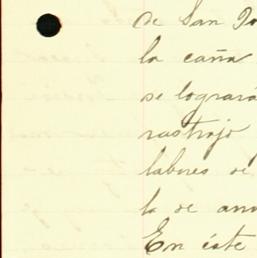 de San
la caña
se logrará
rastrojo
labores de
la de
En éste